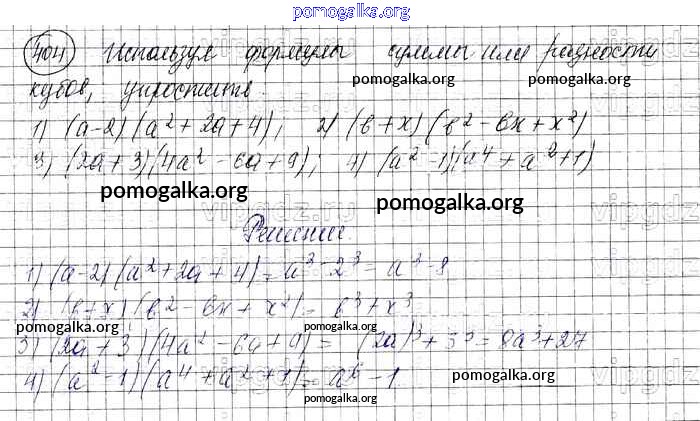 pomogalka.org
404 Используя формулы суммы или разности
pomogalka.org pomogalka.org
кубов, упростить.
1) (a-2)(a²+2a+4); 2) (b+x)(b²-bx+x²)
3) (2a+3)(4a²-6a+9); 4) (a²-1)(a⁴+a²+1)
pomogalka.org pomogalka.org
vipgdz.ru vipgdz
Решение.
1) (a-2)(a²+2a+4)=a³-2³=a³-8
2) (b+x)(b²-bx+x²)=b³+x³
pomogalka.org pomogalka.org
3) (2a+3)(4a²-6a+9)=(2a)³+3³=8a³+27
4) (a²-1)(a⁴+a²+1)=a⁶-1
pomogalka.org
pomogalka.org